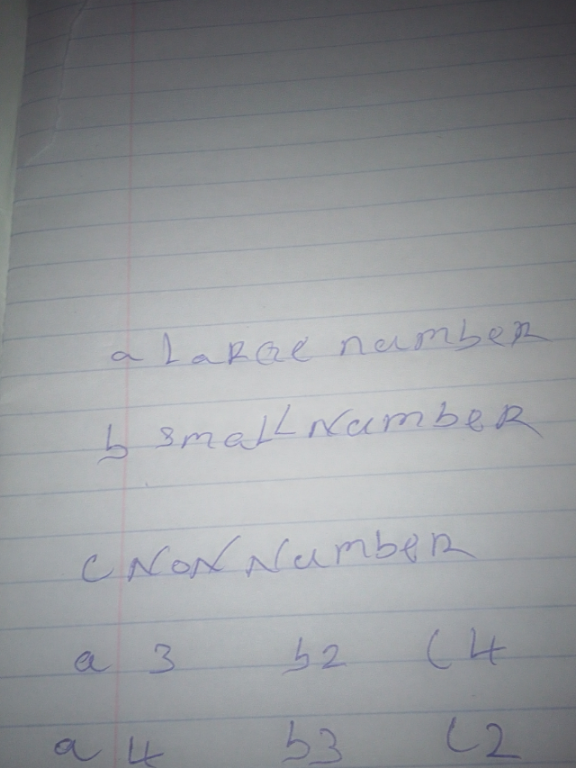 a LaRGe number
b smaLL Number
c NoN Number
a 3 b2 C 4
a 4 b3 C2